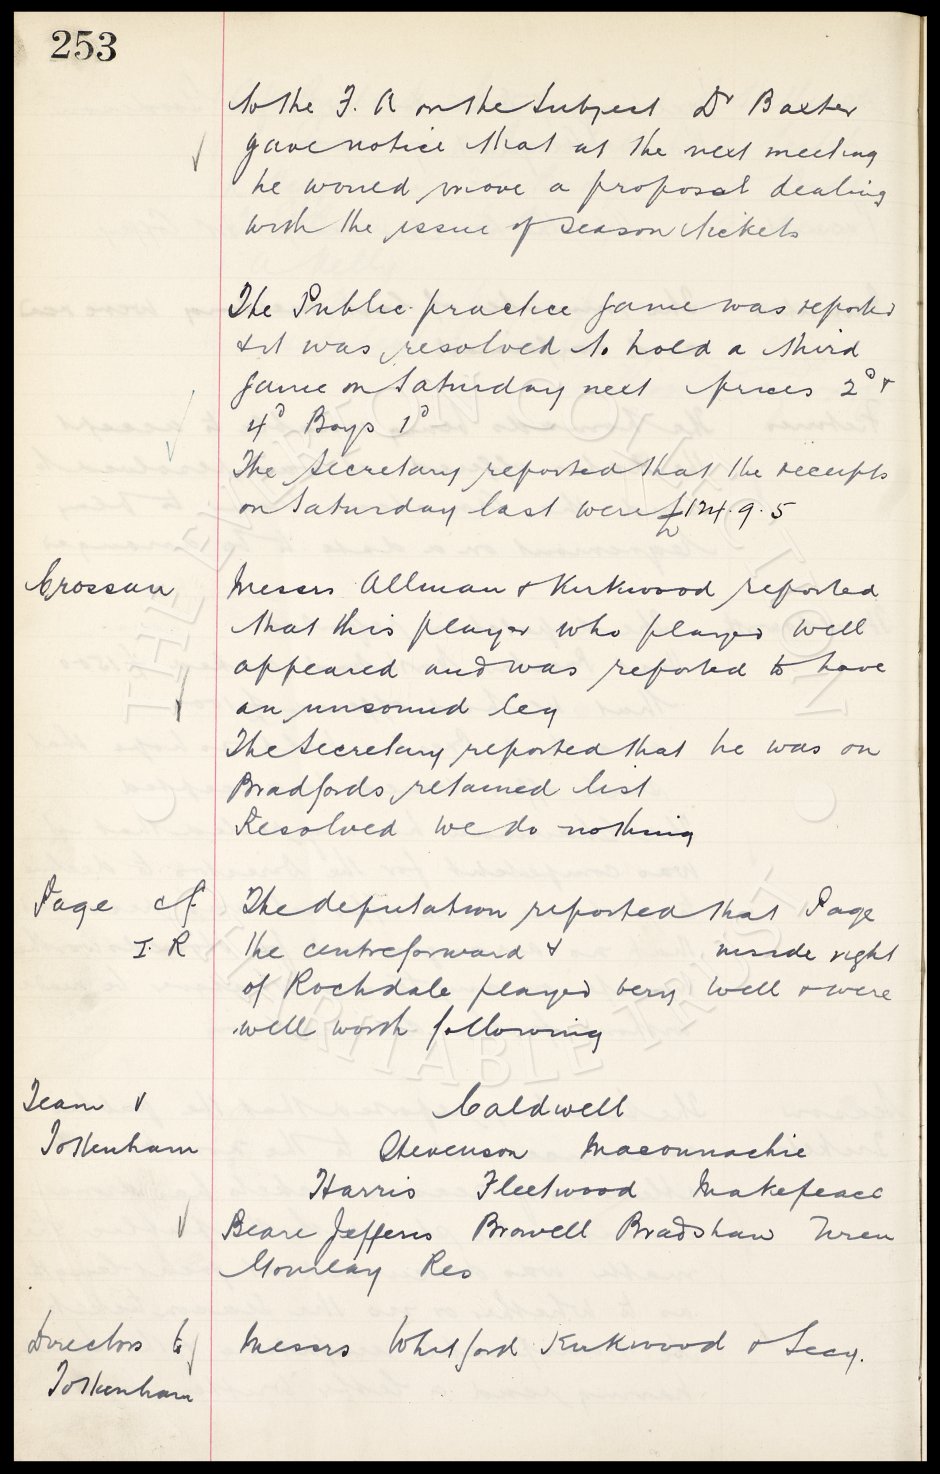 253
to the F. A on the subject Dr Baxter
gave notice that at the next meeting
he would move a proposal dealing
with the issue of season tickets
The Public practice game was reported
& it was resolved to hold a third
game on Saturday next prices 2d &
4d Boys 1d
The Secretary reported that the receipts
on Saturday last were £124.9.5
Crossan Messrs Allman & Kirkwood reported
that this player who played well
appeared and was reported to have
an unsound leg
The Secretary reported that he was on
Bradfords retained list
Resolved we do nothing
Page cf. The deputation reported that Page
I. R the centreforward & inside right
of Rochdale played very well & were
well worth following
Team v Caldwell
Tottenham Stevenson Maconnachie
Harris Fleetwood Makepeace
Beare Jefferis Browell Bradshaw Wren
Gourlay Res
Directors to Messrs Whitford Kirkwood & Secy.
Tottenham